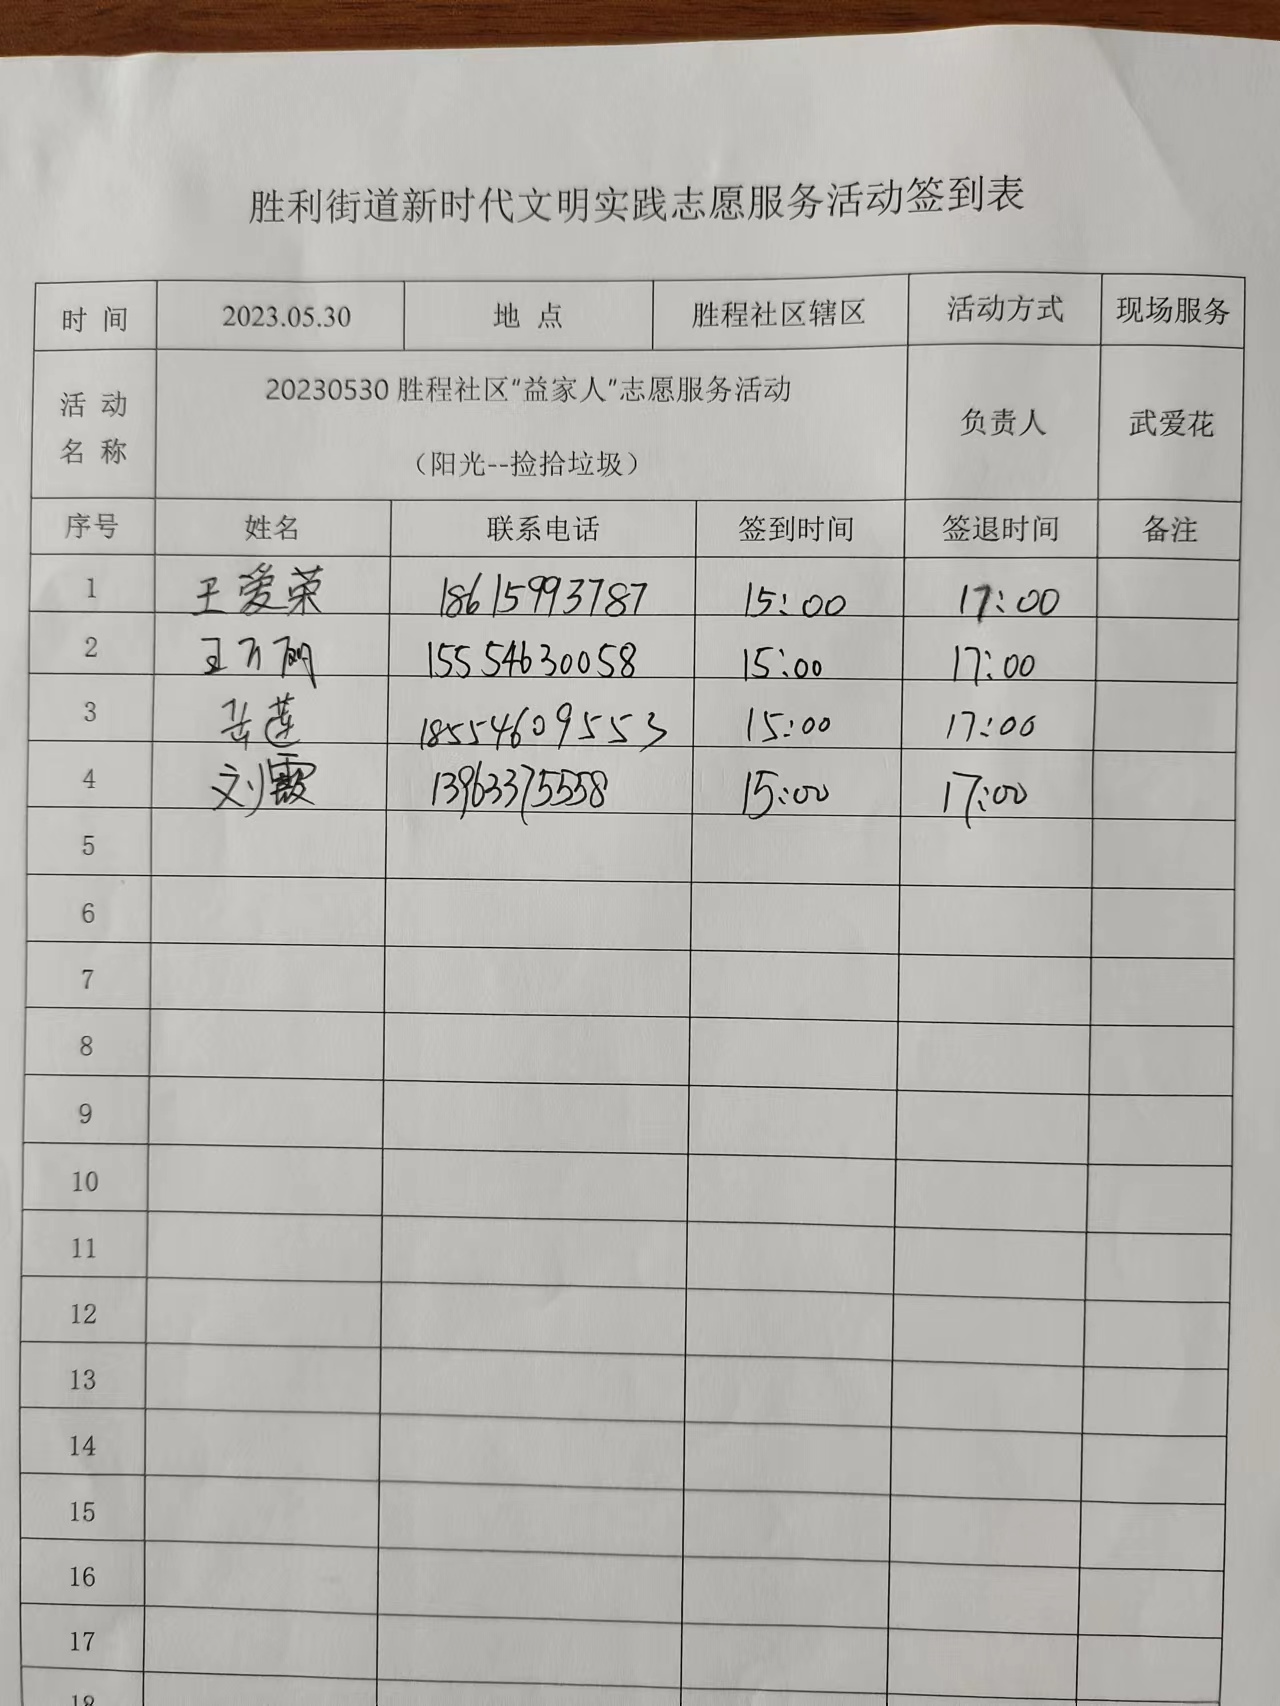 胜利街道新时代文明实践志愿服务活动签到表
时 间 2023.05.30 地 点 胜程社区辖区 活动方式 现场服务
活 动 名 称 20230530胜程社区“益家人”志愿服务活动 负责人 武爱花
（阳光--捡拾垃圾）
序号 姓名 联系电话 签到时间 签退时间 备注
1 王爱荣 18615993787 15:00 17:00
2 15554630058 15:00 17:00
3 岳莲 18554609553 15:00 17:00
4 刘霞 13963375558 15:00 17:00
5
6
7
8
9
10
11
12
13
14
15
16
17
18